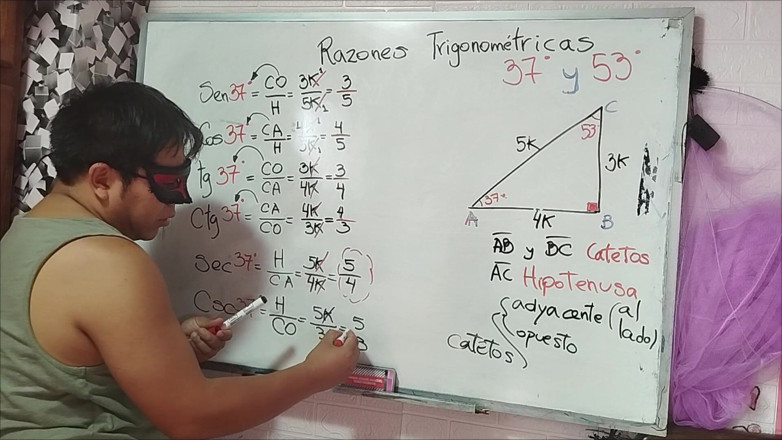 Razones Trigonométricas
37° y 53°
Sen 37° = CO/H = 3K/5K = 3/5
Cos 37° = CA/H = = 4/5
tg 37° = CO/CA = 3K/4K = 3/4
Ctg 37° = CA/CO = 4K/3K = 4/3
Sec 37° = H/CA = 5K/4K = 5/4
Csc 37° = H/CO = 5K/3 = 5/3
C
53°
5K
3K
37°
A
4K
B
AB y BC Catetos
AC Hipotenusa
Catetos { adyacente (al lado)
opuesto